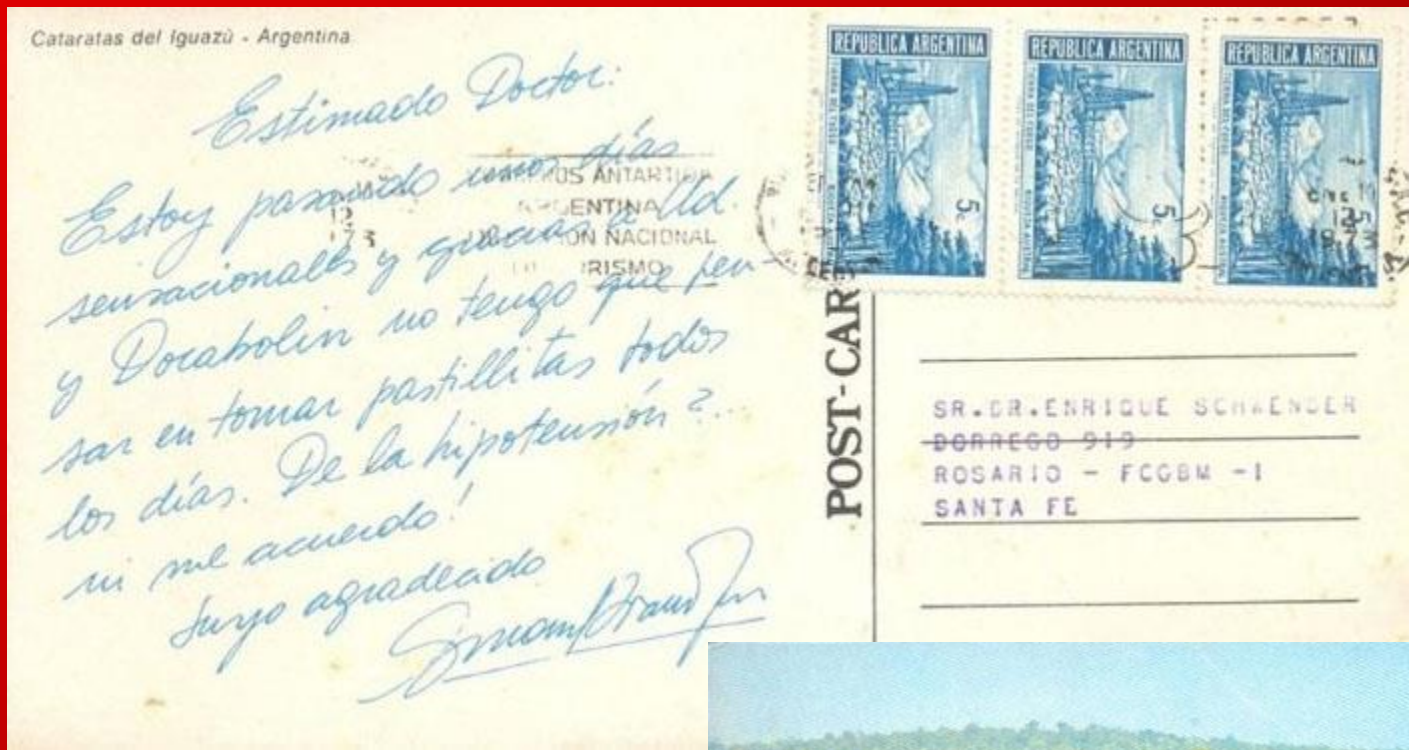 Cataratas del Iguazú - Argentina
Estimado Doctor:
Estoy pasando unos días
sensacionales y gracias a Ud.
y Docabolin no tengo que pen-
sar en tomar pastillitas todos
los días. De la hipotensión?..
ni me acuerdo!
Suyo agradecido
REPUBLICA ARGENTINA
5c
REPUBLICA ARGENTINA
5c
REPUBLICA ARGENTINA
5c
ANTARTIDA
ARGENTINA
NACIONAL
POST-CAR
SR.DR.ENRIQUE SCHWENDER
DORREGO 919
ROSARIO - FCGBM -1
SANTA FE